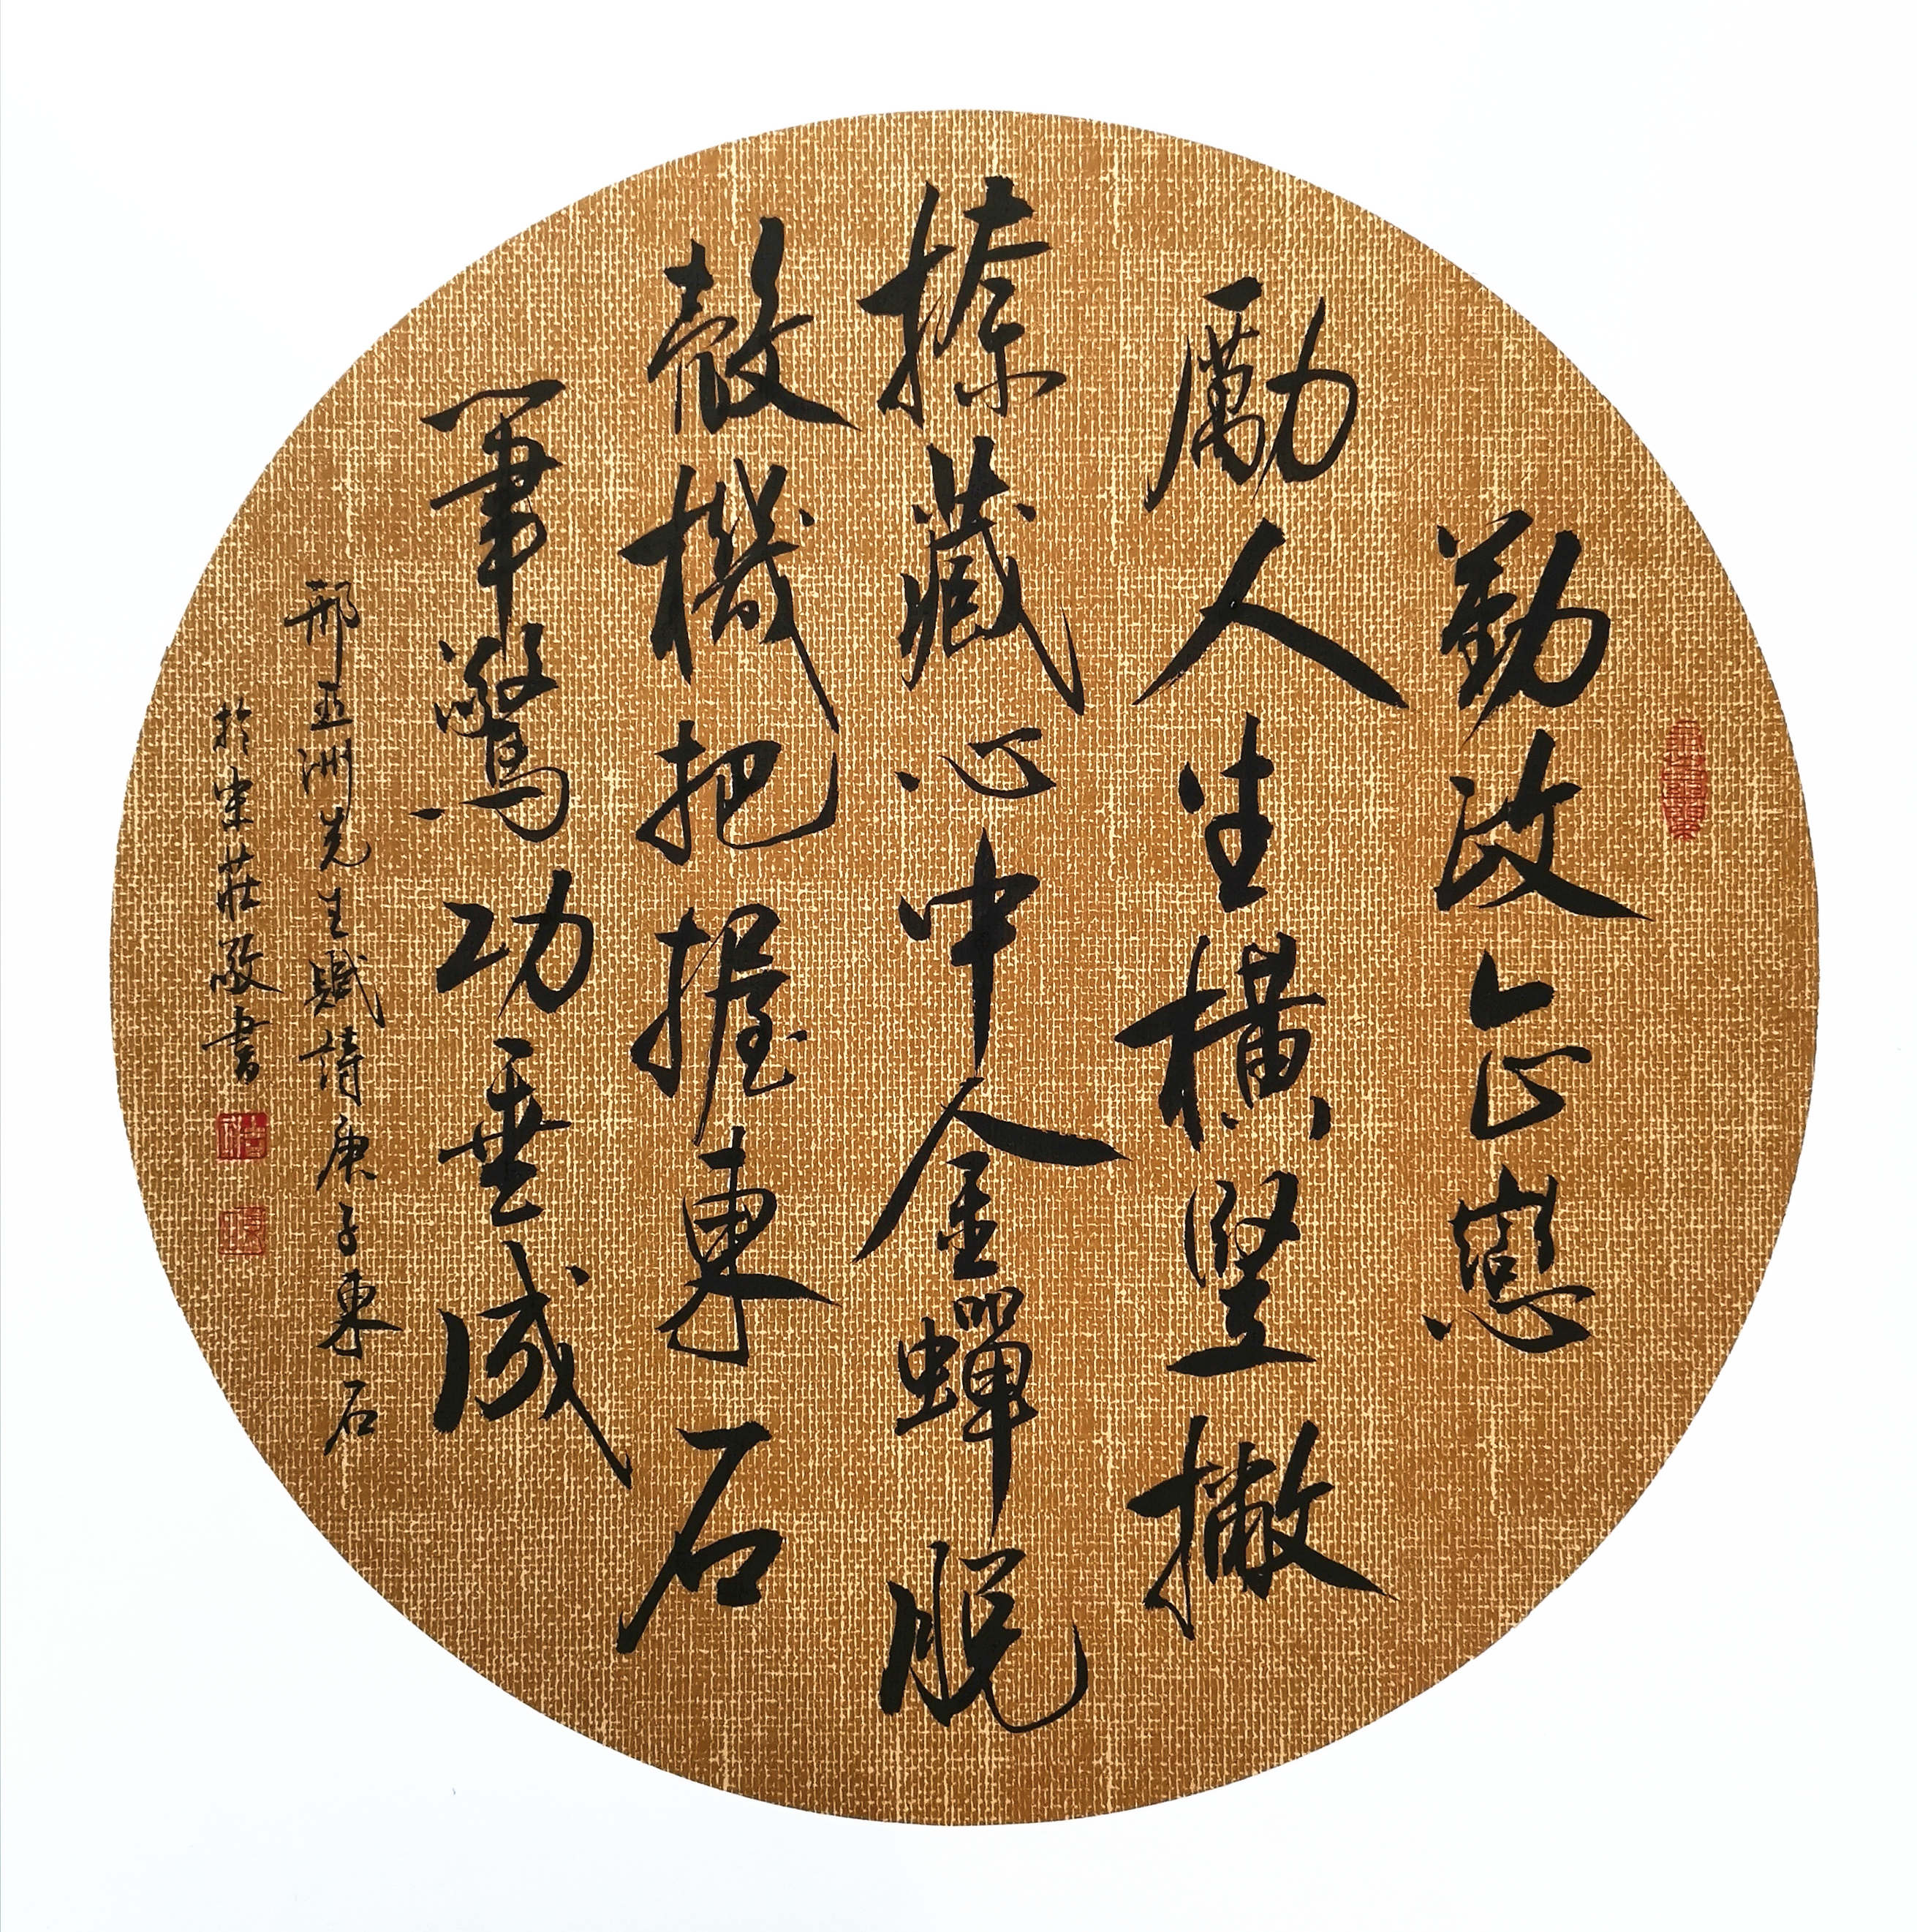 勤政企戀
勵人生橫豎撇
捺藏心中金蟬脫
殼機把握東石
筆驚功垂成
邢亞洲先生賦詩庚子東石
於宋莊敬書